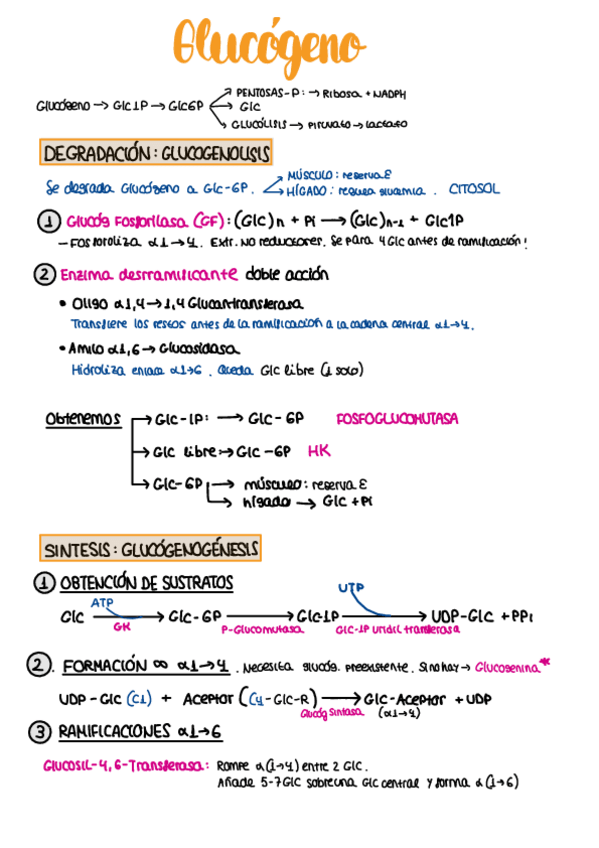 Glucógeno
Glucógeno → Glc1P → Glc6P
PENTOSAS-P: → Ribosa + NADPH
Glc
GLUCÓLISIS → Piruvato → Lactato
DEGRADACIÓN: GLUCOGENOLISIS
Se degrada Glucógeno a Glc-6P.
MÚSCULO: reserva E
HÍGADO: regula glucemia.
CITOSOL
① Glucóg Fosforilasa (GF): (Glc)n + Pi → (Glc)n-1 + Glc1P
- Fosforoliza α1→4. Extr. NO reductores. Se para 4 Glc antes de ramificación!
② Enzima desrramificante doble acción
• Oligo α1,4→1,4 Glucantransferasa
Transfiere los restos antes de la ramificación a la cadena central α1→4.
• Amilo α1,6→Glucosidasa
Hidroliza enlace α1→6. Queda Glc libre (1 solo)
Obtenemos
Glc-1P: → Glc-6P FOSFOGLUCOMUTASA
Glc libre:→Glc-6P HK
Glc-6P → músculo: reserva E
→ hígado → Glc + Pi
SINTESIS: GLUCÓGENOGÉNESIS
① OBTENCIÓN DE SUSTRATOS
ATP UTP
Glc → Glc-6P → Glc-1P → UDP-Glc + PPi
GK P-Glucomutasa Glc-1P Uridil transferasa
②. FORMACIÓN ∞ α1→4. Necesita glucóg. preexistente. Si no hay → Glucogenina*
UDP-Glc (C1) + Aceptor (C4-Glc-R) → Glc-Aceptor + UDP
Glucóg Sintasa (α1→4)
③ RAMIFICACIONES α1→6
Glucosil-4,6-Transferasa: Rompe α(1→4) entre 2 Glc.
Añade 5-7 Glc sobre una Glc central y forma α(1→6)